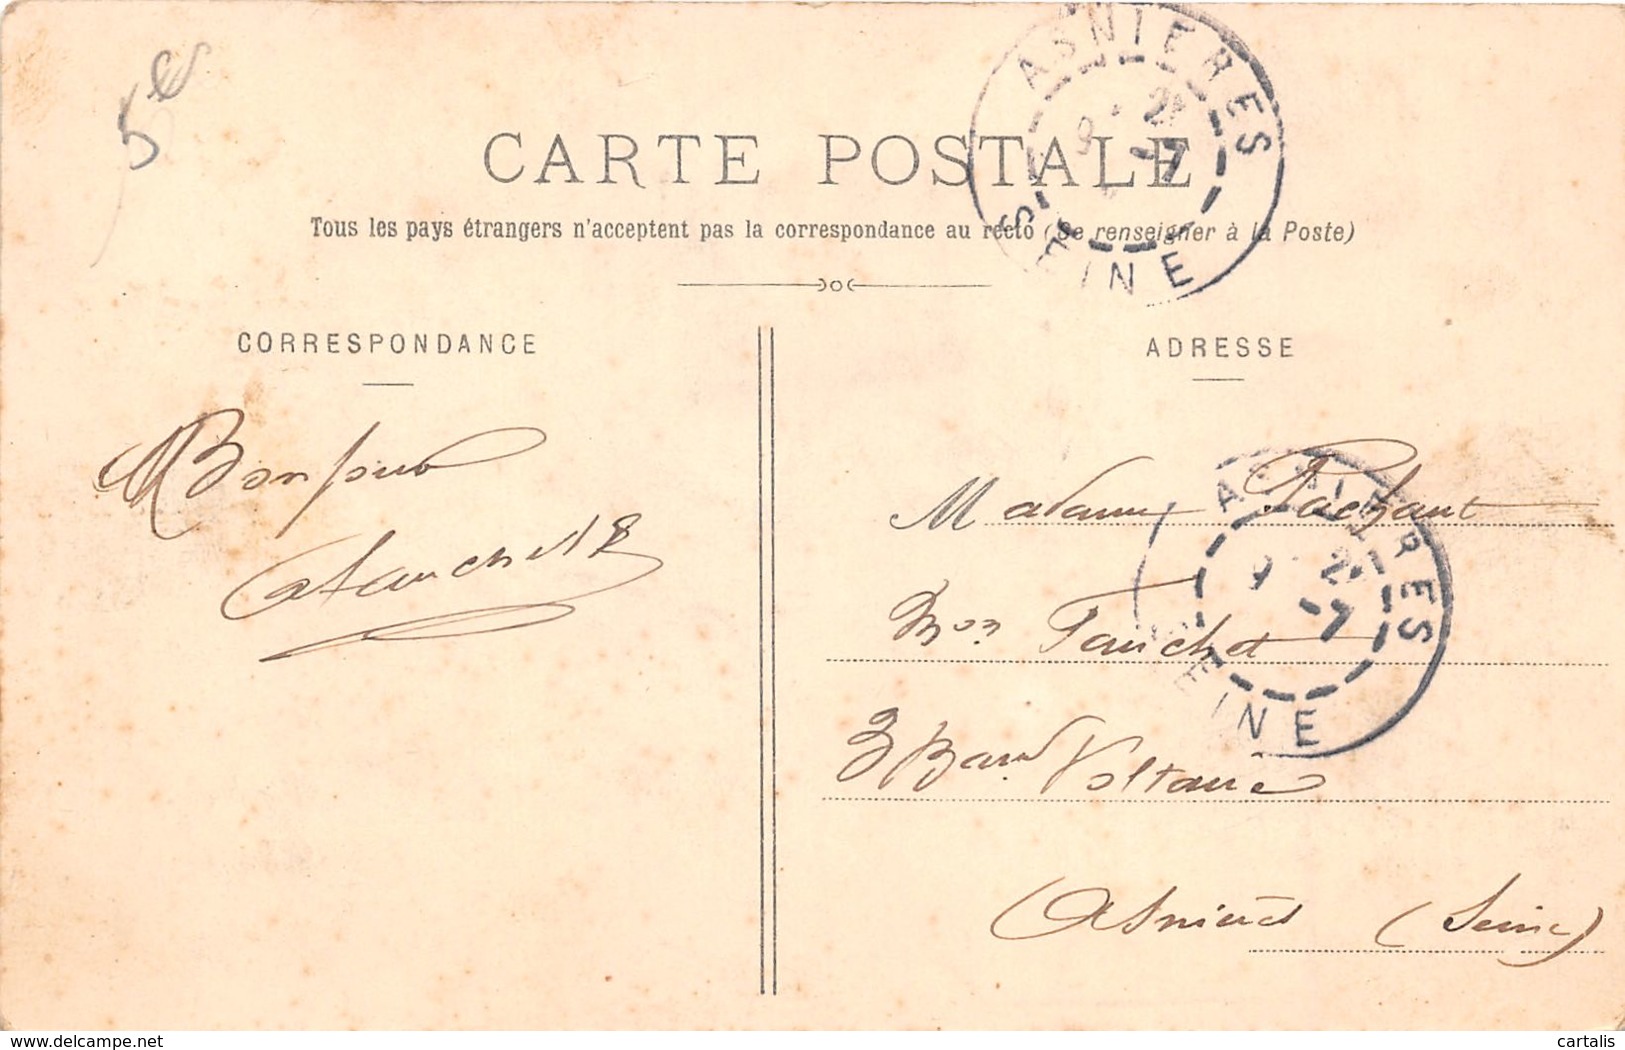 5
CARTE POSTALE
Tous les pays étrangers n'acceptent pas la correspondance au recto (Se renseigner à la Poste)
ASNIERES
SEINE
9 21
-7
CORRESPONDANCE
ADRESSE
Bonjour
Madame Pachaut
Mon Fauchet
3 Bard Voltaire
Asnières (Seine)
ASNIERES
SEINE
9 21
-7
delcampe.net
cartalis